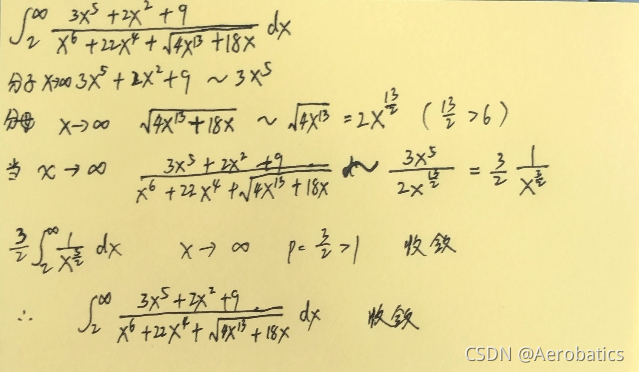 ∫₂^∞ (3x⁵+2x²+9)/(x⁶+22x⁴+√(4x¹³+18x)) dx
分子 x→∞ 3x⁵+2x²+9 ~ 3x⁵
分母 x→∞ √(4x¹³+18x) ~ √(4x¹³) = 2x^(13/2) (13/2 >6)
当 x→∞ (3x⁵+2x²+9)/(x⁶+22x⁴+√(4x¹³+18x)) ~ 3x⁵/(2x^(13/2)) = 3/2 1/x^(3/2)
3/2 ∫₂^∞ 1/x^(3/2) dx x→∞ p=3/2>1 收敛
∴ ∫₂^∞ (3x⁵+2x²+9)/(x⁶+22x⁴+√(4x¹³+18x)) dx 收敛
CSDN @Aerobatics